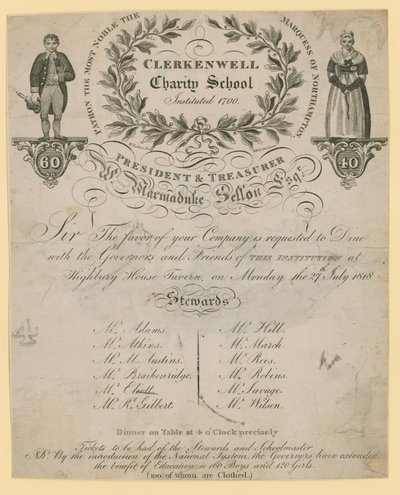 PATRON THE MOST NOBLE THE MARQUESS OF NORTHAMPTON
CLERKENWELL
Charity School
Instituted 1700.
60
40
PRESIDENT & TREASURER
Wm. Marmaduke Sellon Esqr.
Sir The favor of your Company is requested to Dine
with the Governors and Friends of THIS INSTITUTION at
Highbury House Tavern, on Monday the 27th July 1818
Stewards
Mr. Adams.
Mr. Atkins.
Mr. M. Austins.
Mr. Brackenridge.
Mr. Elliott
Mr. R. Gilbert.
Mr. Hill.
Mr. March.
Mr. Rees.
Mr. Robins.
Mr. Savage.
Mr. Wilson.
Dinner on Table at 4 o'Clock precisely
Tickets to be had of the Stewards and Schoolmaster
NB. By the introduction of the National System, the Governors have extended
the benefit of Education to 160 Boys and 120 Girls.
(100 of whom are Clothed.)